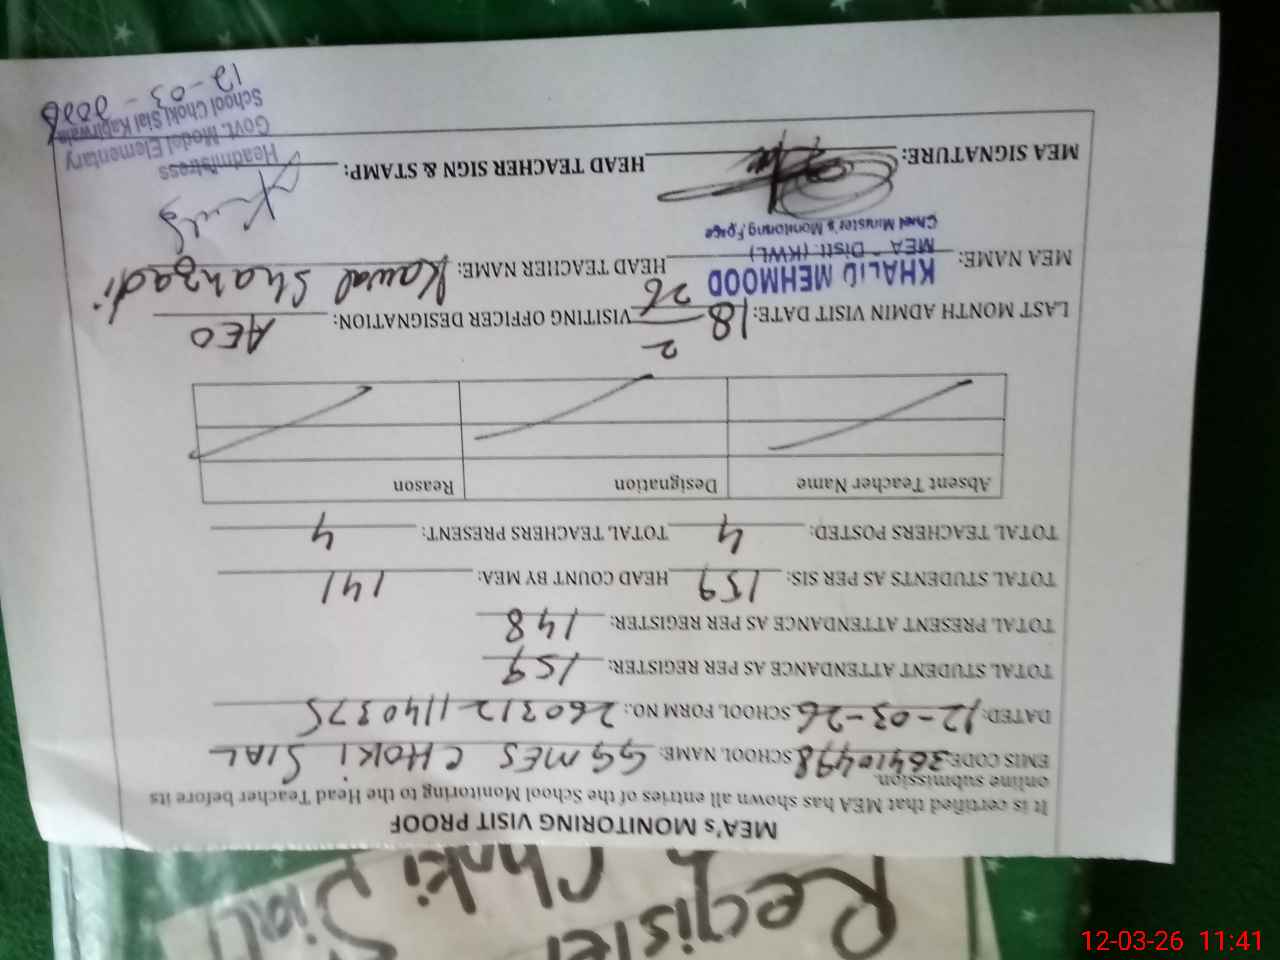 Register
Choki Sial
MEA's MONITORING VISIT PROOF
It is certified that MEA has shown all entries of the School Monitoring to the Head Teacher before its
online submission.
EMIS CODE: 36410498 SCHOOL NAME: GGMES CHOKI SIAL
DATED: 12-03-26 SCHOOL FORM NO.: 2603121140375
TOTAL STUDENT ATTENDANCE AS PER REGISTER: 159
TOTAL PRESENT ATTENDANCE AS PER REGISTER: 148
TOTAL STUDENTS AS PER SIS: 159 HEAD COUNT BY MEA: 141
TOTAL TEACHERS POSTED: 4 TOTAL TEACHERS PRESENT: 4
Absent Teacher Name Designation Reason
LAST MONTH ADMIN VISIT DATE: 18 2 26 VISITING OFFICER DESIGNATION: AEO
MEA NAME: KHALID MEHMOOD HEAD TEACHER NAME: Kawal Shahzadi
MEA - Distt: (KWL)
Chief Minister's Monitoring Force
MEA SIGNATURE: HEAD TEACHER SIGN & STAMP:
Headmistress
Govt. Model Elementary
School Choki Sial Kabirwala
12-03-2026
12-03-26 11:41